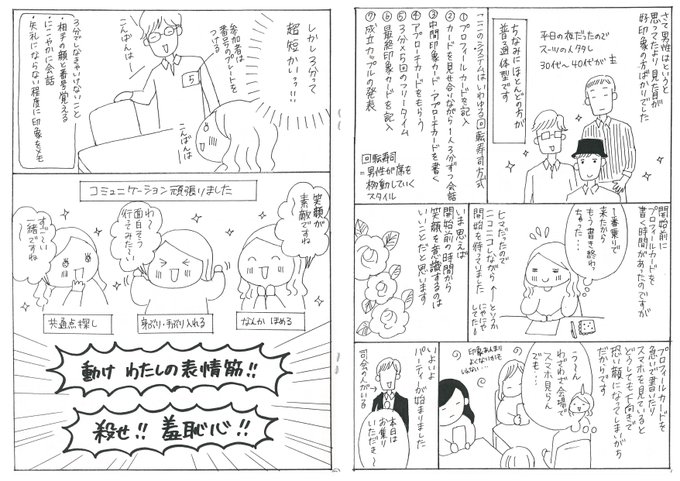 さて男性はというと
思ってたより見た目が
好印象の方ばかりでした
平日の夜だったので
スーツの人多し
30代〜40代が主
ちなみにほとんどの方が
普通体型です
ここのシステムはいわゆる回転寿司方式
①プロフィールカードを記入
②カードを見せ合いながら1人3分ずつ会話
③中間印象カード・アプローチカードを書く
④アプローチカードをもらう
⑤3分×5回のフリータイム
⑥最終印象カードを記入
⑦成立カップルの発表
回転寿司
=男性が席を
移動していく
スタイル
開始前に
プロフィールカードを
書く時間があったのですが
1番乗りで
来たから
もう書き終わ
ちゃった…
ヒマだったので
ニコニコしながら←というか
にやにや
してた
開始を待ってました
いま思えば
開始前の時間から
笑顔を意識するのは
いいことだと思います
プロフィールカードを
急いで書いたり
スマホを見ていると
どうしても下向きで
恐い顔になってしまいがち
だからです
う〜ん
わざわざ会場で
スマホ見らん
でも…
印象あんまり
よくないけどな
いよいよ
パーティーが始まりました
司会の人がいる
本日は
お集り
いただき〜
しかし3分て
超短かいっっ!!
参加者は
番号のプレートを
つける
5
こんばんはー
こんばんは
3分でしなきゃいけないこと
・相手の顔と番号覚える
・にこやかに会話
・失礼にならない程度に印象をメモ
コミュニケーション頑張りました
笑顔が
素敵ですね
なんかほめる
わ〜
面白そう
行ってみた〜い
身ぶり・手ぶり入れる
すご〜い
一緒ですね
共通点探し
動け わたしの表情筋!!
殺せ!! 羞恥心!!